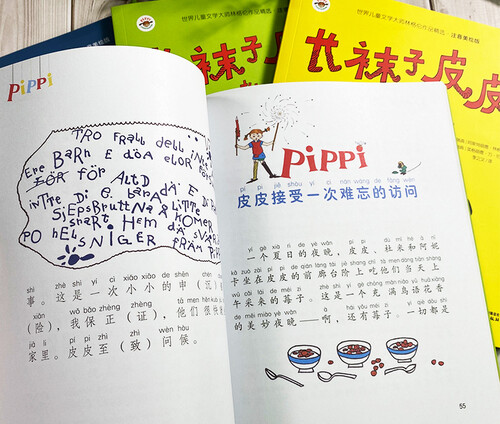 世界儿童文学大师林格伦作品精选·注音美绘版
长袜子皮
长袜子皮皮
PiPPi
TRO FRALL dell
ERE BARn E dÖA ELOR
FÖR ALtD
inTTE Di E bARA dÄ E
SJEPSbRuttNA Å LiTTE
snARt HEm KOmER
PO HELSNiGER
shì zhè shì yí cì xiǎo xiǎo de shēn chén
事。这是一次小小的申(沉)
xiǎn wǒ bǎo zhèng zhèng tā men hěn kuài
(险),我保正(证),他们很快
jiā lǐ pí pi zhì wèn hòu
家里。皮皮至(致)问候。
PiPPi
pí pi jiē shòu yí cì nán wàng de fǎng wèn
皮皮接受一次难忘的访问
yí gè xià rì de yè wǎn pí pi dù mǐ hé ā nī
一个夏日的夜晚,皮皮、杜米和阿妮
kǎ zuò zài pí pi de qián láng tái jiē shang chī tā men dāng tiān shàng
卡坐在皮皮的前廊台阶上吃他们当天上
wǔ cǎi lái de méi zi zhè shì yí gè chōng mǎn niǎo yǔ huā xiāng
午采来的莓子。这是一个充满鸟语花香
de měi miào yè wǎn a hái yǒu méi zi yí qiè dōu shì
的美妙夜晚——啊,还有莓子。一切都是
55